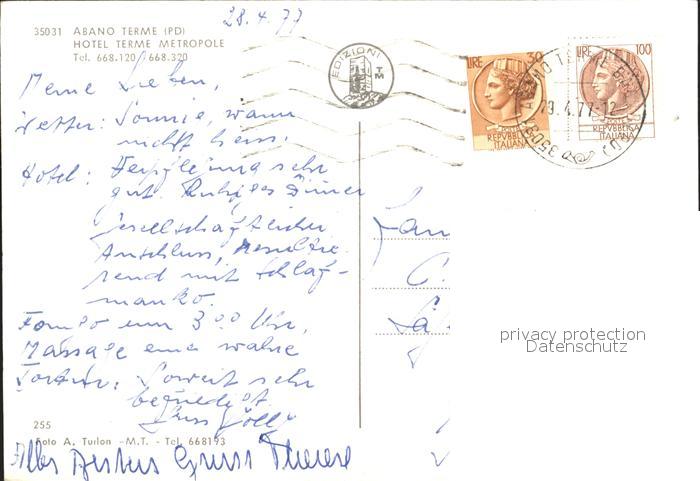 28.4.77
35031 ABANO TERME (PD)
HOTEL TERME METROPOLE
Tel. 668.120 / 668.320
Meine Lieben,
Wetter: Sonnig, warm
nicht heiss.
Hotel: Verpflegung sehr
gut. Ruhiges Zimmer
gesellschaftlicher
Anschluss,
rend mit Schlaf-
manko.
Fango um 3°° Uhr,
Massage eine wahre
Tortur. Soweit sehr
befriedigt.
Gruss
255
Foto A. Turlon - M.T. - Tel. 668193
Alles Gruss Therese
EDIZIONI
MT
LIRE 30
REPVBBLICA
ITALIANA
LIRE 100
REPVBBLICA
ITALIANA
35031 ABANO TERME
29.4.77-12
privacy protection
Datenschutz